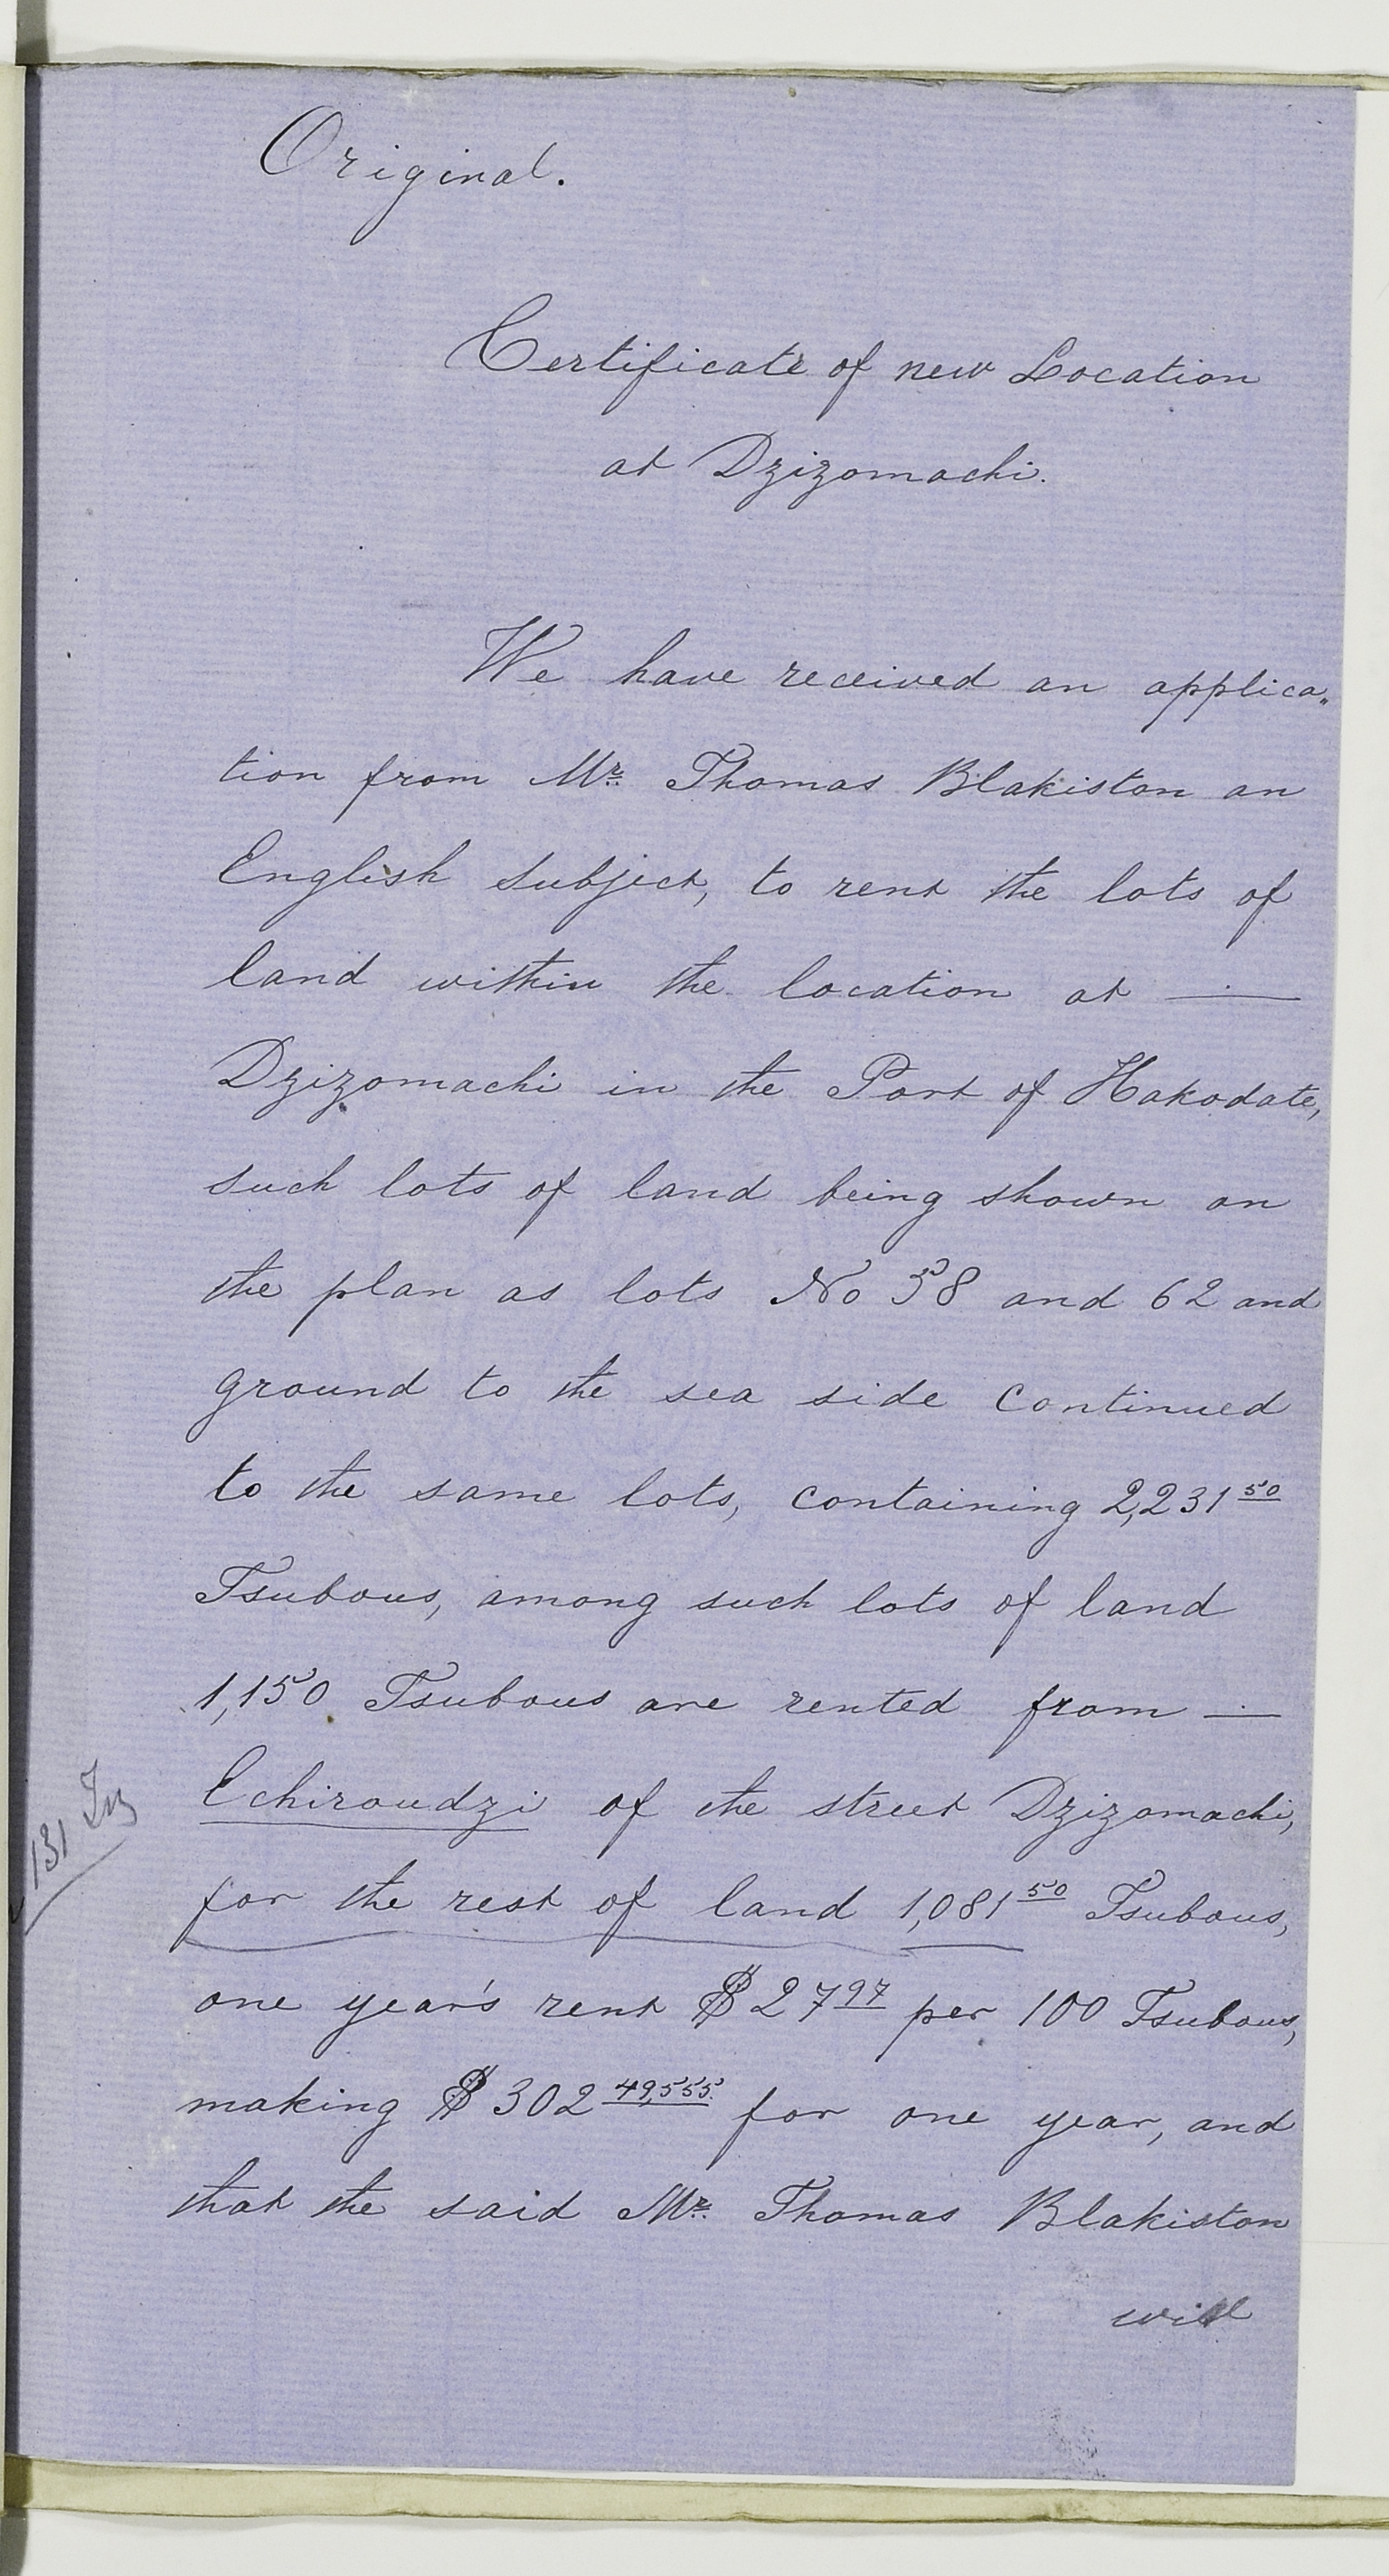 Original.
Certificate of new Location
at Dzizomachi.
We have received an applica„
tion from Mr. Thomas Blakiston an
English subject, to rent the lots of
land within the location at —
Dzizomachi in the Port of Hakodate,
such lots of land being shown on
the plan as lots No 58 and 62 and
ground to the sea side continued
to the same lots, containing 2,231 50
Tsubous, among such lots of land
1,150 Tsubous are rented from —
Echiroudzi of the street Dzizomachi,
for the rest of land 1,081 50 Tsubous,
one year's rent $ 27 97 per 100 Tsubous,
making $ 302 49,555 for one year, and
that the said Mr. Thomas Blakiston
will
131